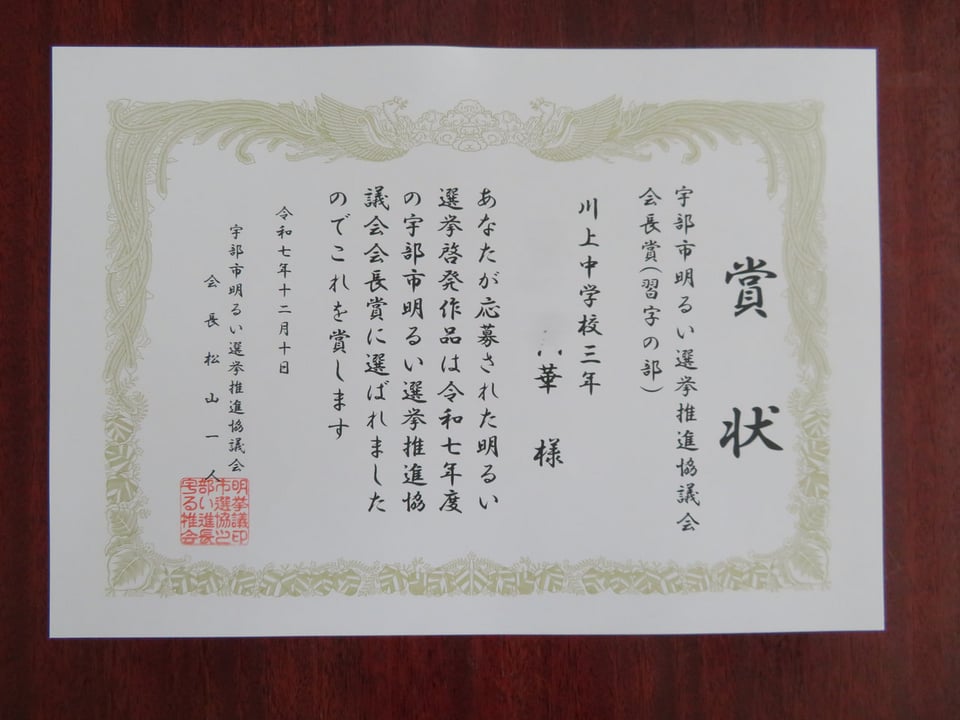 賞状
宇部市明るい選挙推進協議会
会長賞（習字の部）
川上中学校三年
華 様
あなたが応募された明るい
選挙啓発作品は令和七年度
の宇部市明るい選挙推進協
議会会長賞に選ばれました
のでこれを賞します
令和七年十二月十日
宇部市明るい選挙推進協議会
会長 松山一人
明挙議印
市選協之
部い進長
宇る推会